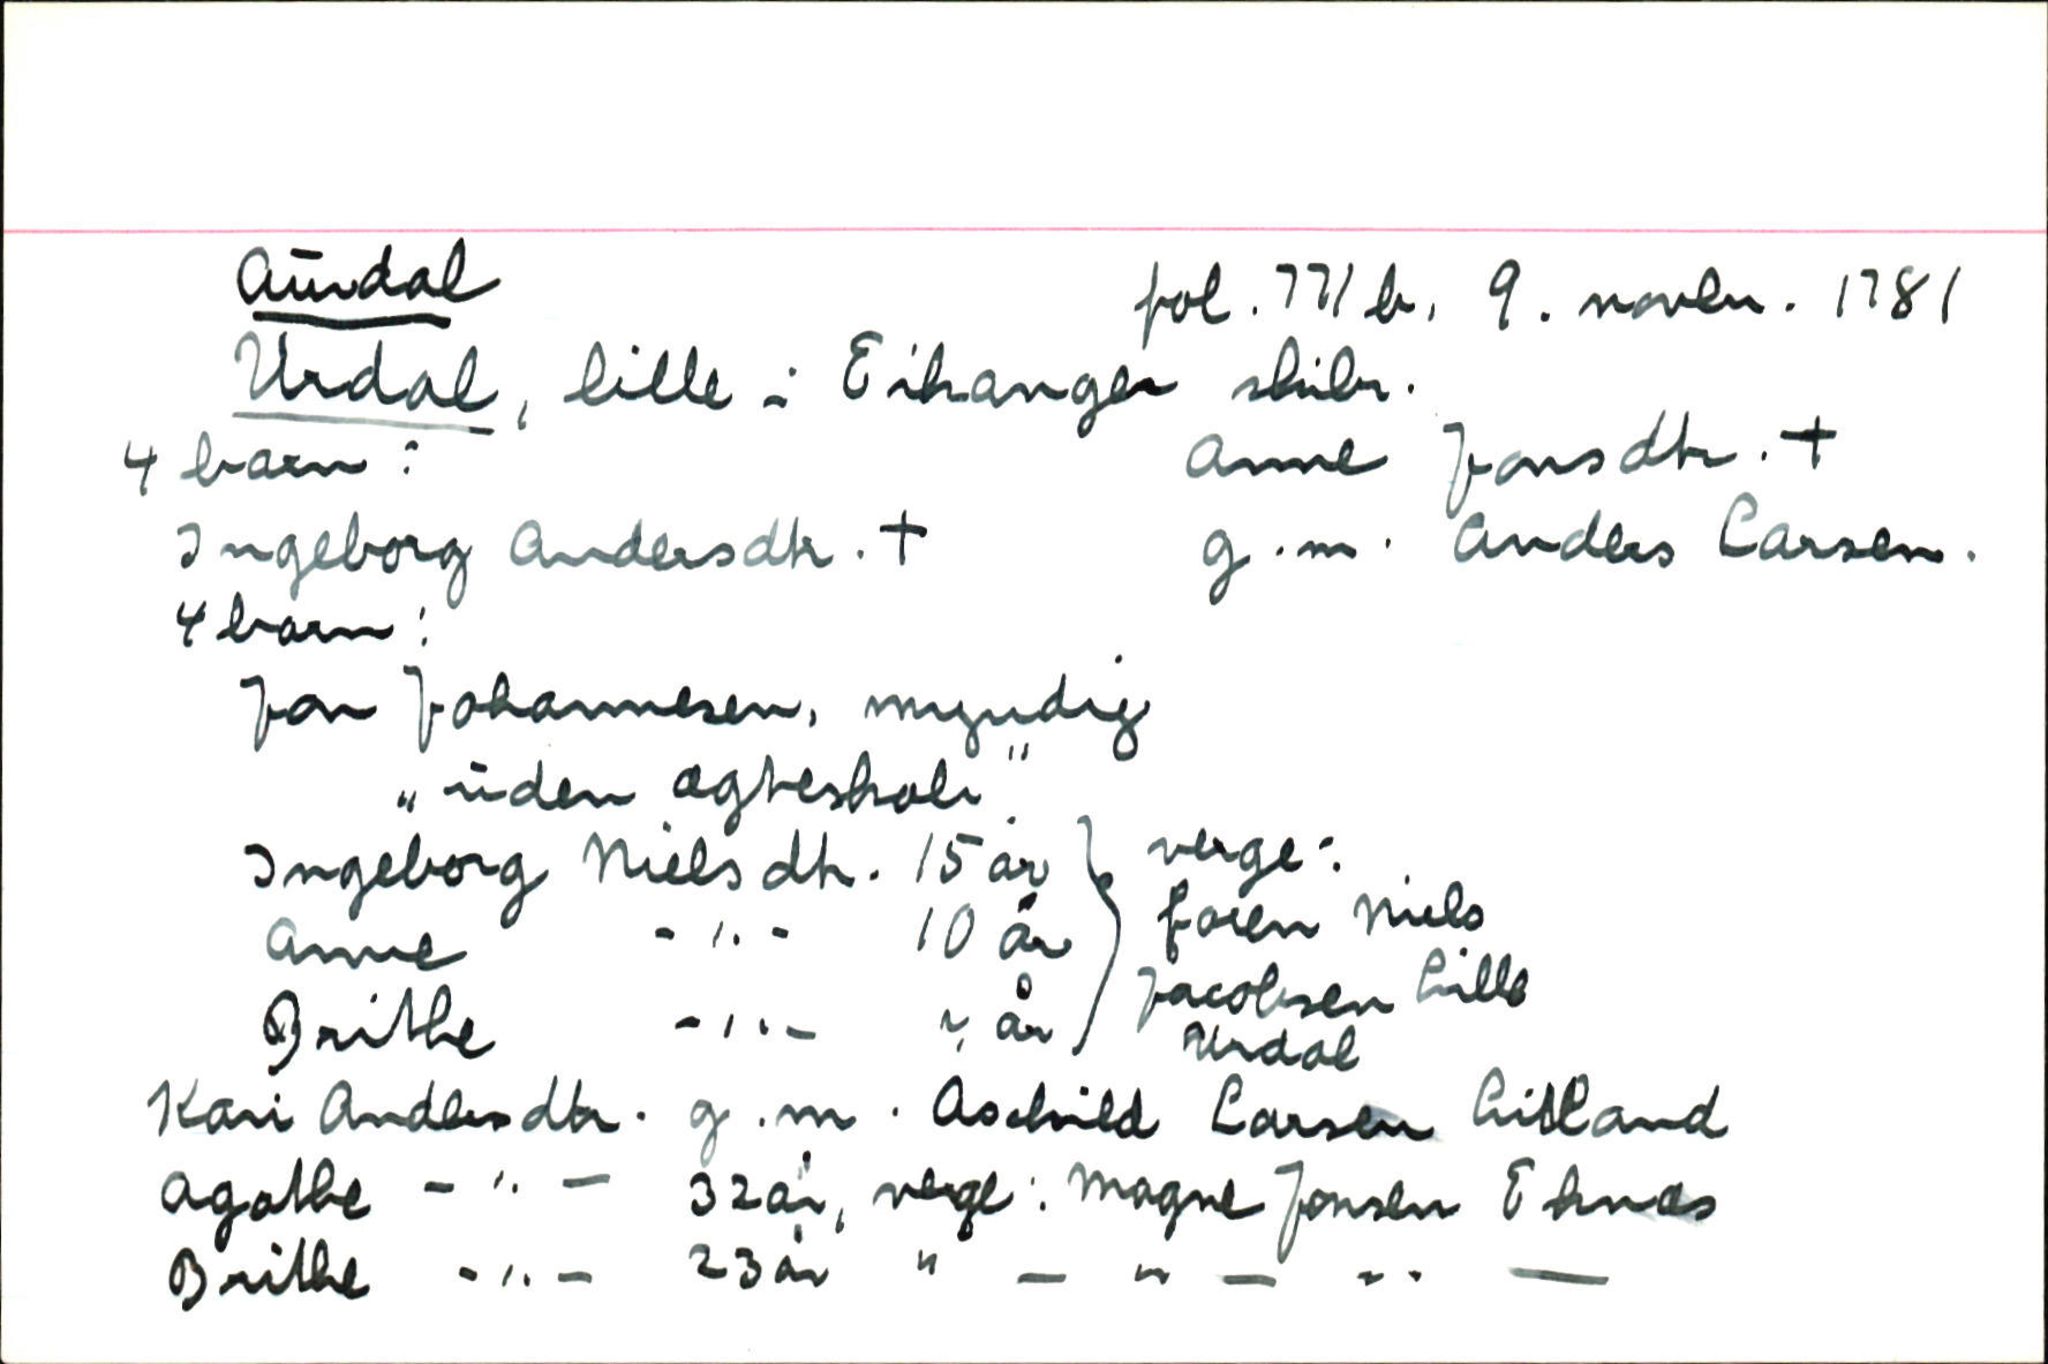 Aŭrdal
fol. 771 b, 9. novbr. 1781
Urdal, lille i Eikanger skibr.
4 barn:
Anne Jonsdtr. +
Ingeborg Andersdtr. +
g.m. Anders Larsen.
4 barn:
Jon Johannesen, myndig
"ŭden ægteskab"
Ingeborg Nielsdtr. 15 år } verge:
Anne -"- 10 år faren Niels
Brithe -"- år Jacobsen Lille
Urdal
Kari Andersdtr. g.m. Aschild Larsen Litland
Agathe -"- 32 år, verge: Magne Jonsen Eknæs
Brithe -"- 23 år " - " - " -